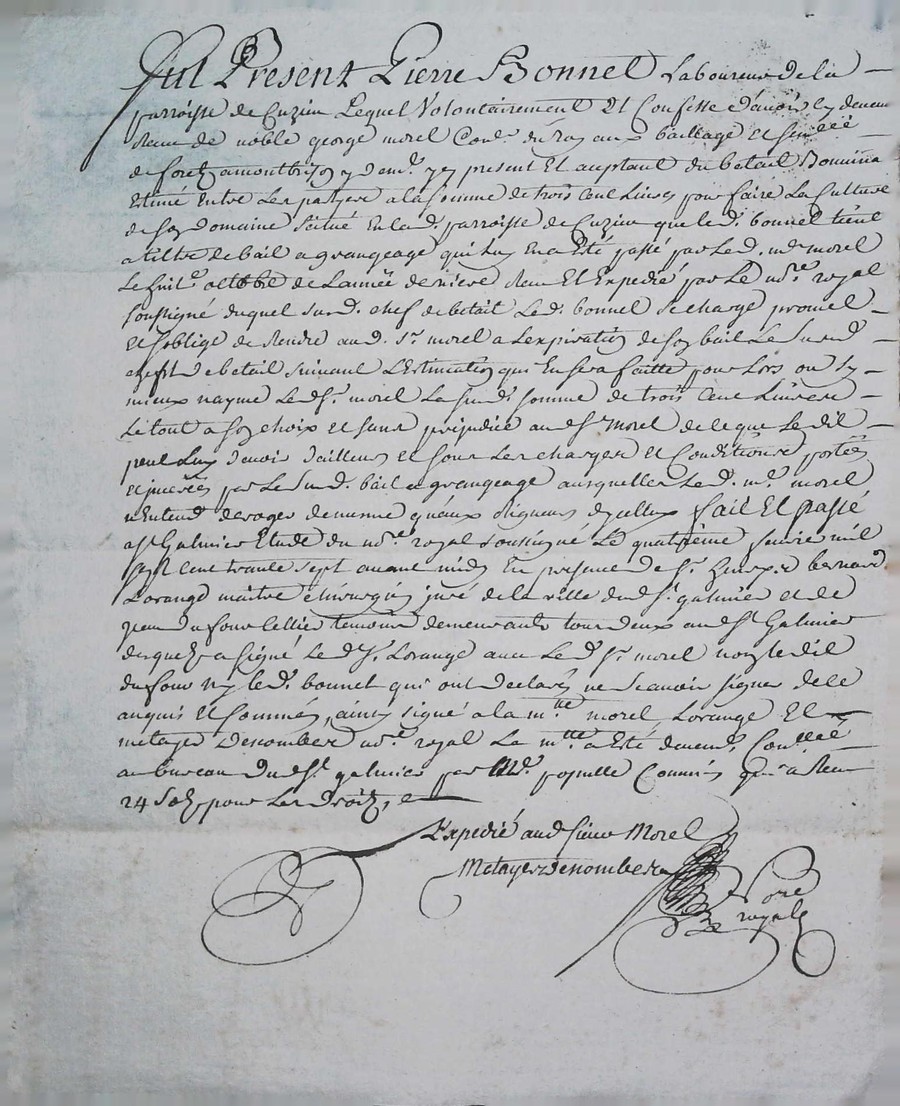 Fut Present Pierre Bonnel Laboureur de la
parroisse de Cuzieu Lequel Volontairement Et Confesse d'avoir cy devant
Receu de noble george morel Coner. du roy aux bailliage et
de forez a montbrison y demt. ycy present Et acceptant du betail Bouvina
Estimé Entre Les partyes a la somme de trois Cent Livres pour faire La Culture
de son domaine scitué En lad. parroisse de Cuzieu que led. bonnel tient
a tiltre de bail a grangeage qui luy En a Esté passé par Led. mr. morel
Le huit octobre de L'année derniere Receu Et Expedié par Le nore. royal
soussigné duquel susd. chef de betail Led. bonnel se charge promet
et s'oblige de Rendre aud. sr. morel a L'expiration de son bail Le susd
chef de betail suivant L'Estimation qui En sera faitte pour Lors ou sy
mieux n'ayme Led. sr. morel La susd. somme de trois Cent Livres
Le tout a son choix et sans prejudice aud. sr. morel de ce que Le dit
peut Luy devoir d'ailleurs et sous Les charges et Conditions portées
et par Le susd. bail a grangeage ausquelles Led. mr. morel
n'Entend deroger de mesme qu'aux d'yceluy fait Et passé
a st. Galmier Etude du nore. royal soussigné Le quatrième mil
sept cent trente sept avant midy En presence de sr. bernard
Lorange maitre chirurgien juré de la ville dud. st. galmier et de
jean dufour cellier temoins demeurants tous deux aud. st. Galmier
desquels a signé Led. sr. Lorange avec Led. sr. morel non ledit
dufour ny led. bonnel qui ont declarés ne scavoir signer de ce
enquis et sommés, ainsy signé a la mtte morel, Lorange Et
metayer Denombert nore. royal La mtte a Esté duement
au bureau dud. st. galmier par Commis qui a Receu
24 sols pour Les droits,
Expedié aud. sieur Morel
Metayer Denombert
Nore
royal